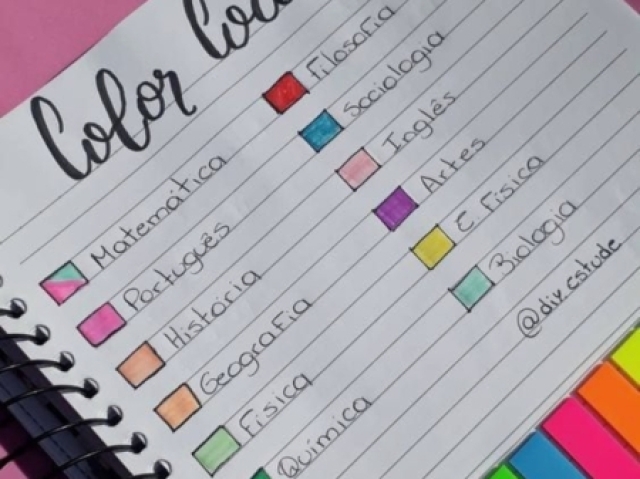 Color Co
Matemática
Português
História
Geografia
Física
Química
Filosofia
Sociologia
Inglês
Artes
E. Física
Biologia
@div.estude